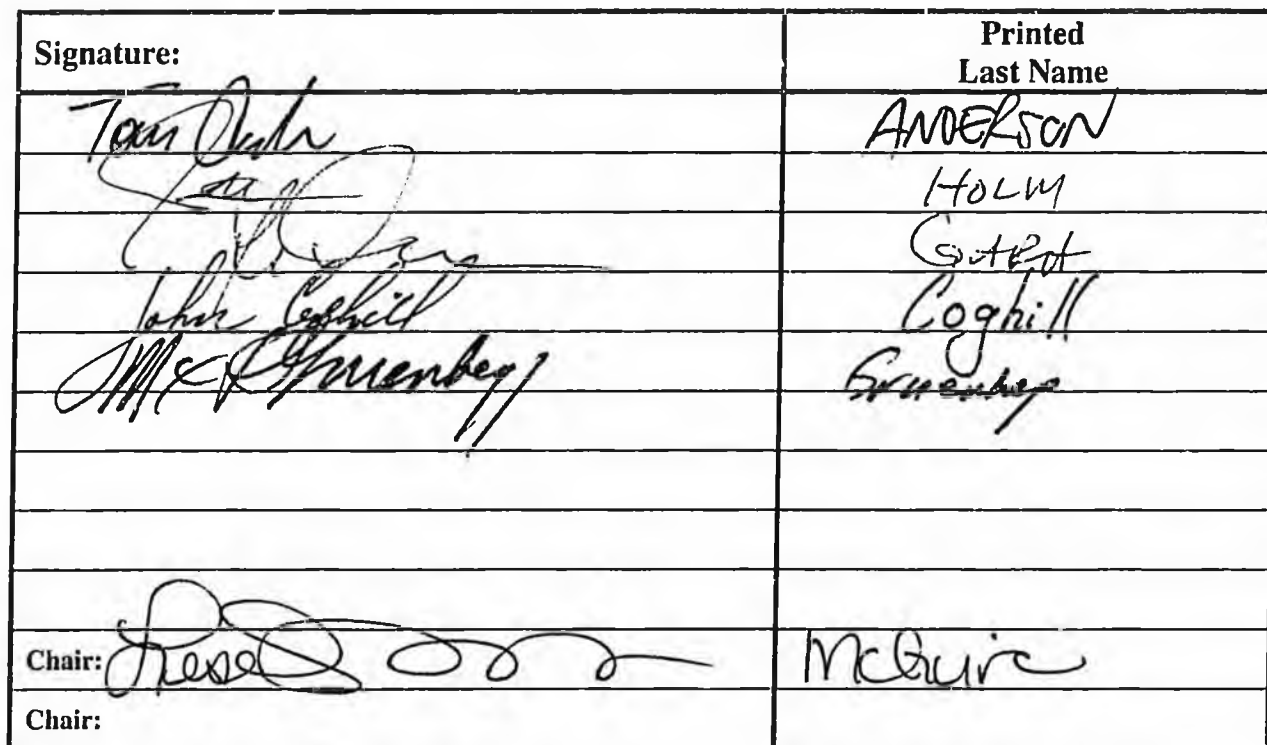 Signature: Printed
Last Name
Tom ANDERSON
HOLM
John Coghill Coghill
Gruenberg Gruenberg
Chair: McGuire
Chair: